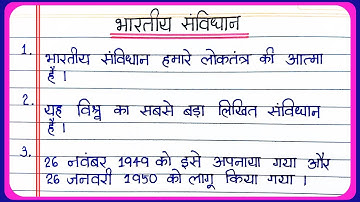 भारतीय संविधान
1. भारतीय संविधान हमारे लोकतंत्र की आत्मा
है।
2. यह विश्व का सबसे बड़ा लिखित संविधान
है।
3. 26 नवंबर 1949 को इसे अपनाया गया और
26 जनवरी 1950 को लागू किया गया।